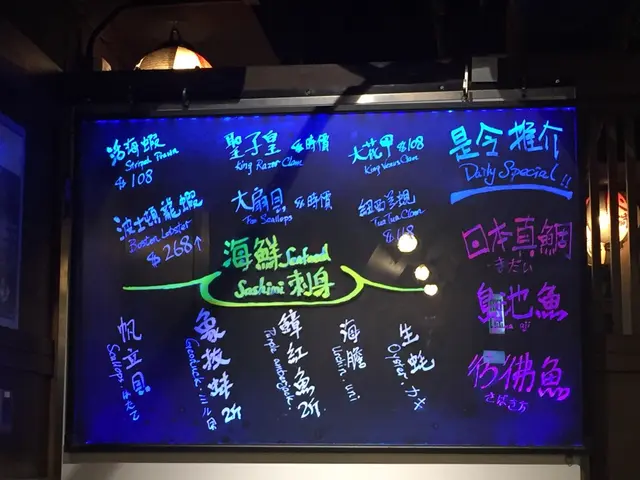 海蝦
Striped Prawn
$108
聖子皇 $時價
King Razor Clam
大花甲 $108
King Venus Clam
是令推介
Daily Special!!
波士頓龍蝦
Boston Lobster
$268↑
大扇貝 $時價
Fan Scallops
紐西蘭蜆
TuaTua Clam
海鮮 Seafood
Sashimi 刺身
日本真鯛
魚池魚
aji
彷彿魚
帆立貝
Scallops
象拔蚌 2斤
Geoduck ミル貝
鱆紅魚 2斤
Purple amberjack
海膽
Urchin. uni
生蚝
Oyster. カキ